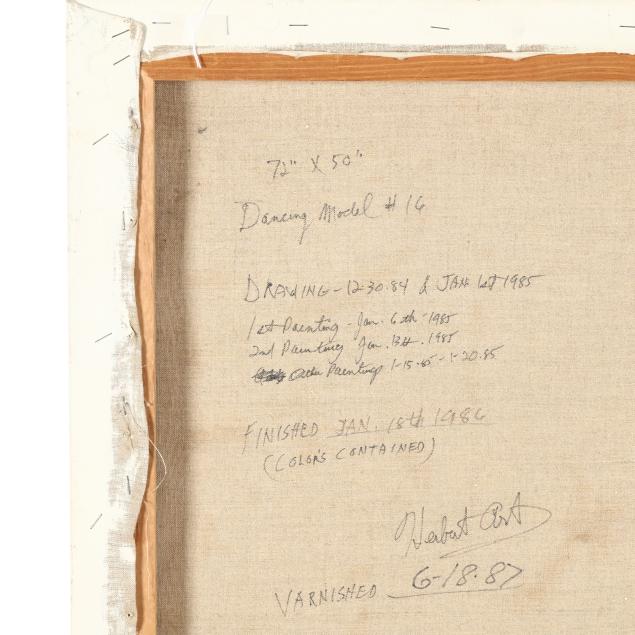 72" X 50"
Dancing Model # 16
DRAWING - 12-30.84 & JAN 1st 1985
1st Painting - Jan. 6th - 1985
2nd Painting Jan. 13th. 1985
Other Paintings 1-15-85 - 1-20.85
FINISHED JAN. 18th 1986
(COLORS CONTAINED)
Herbert
VARNISHED 6-18-87